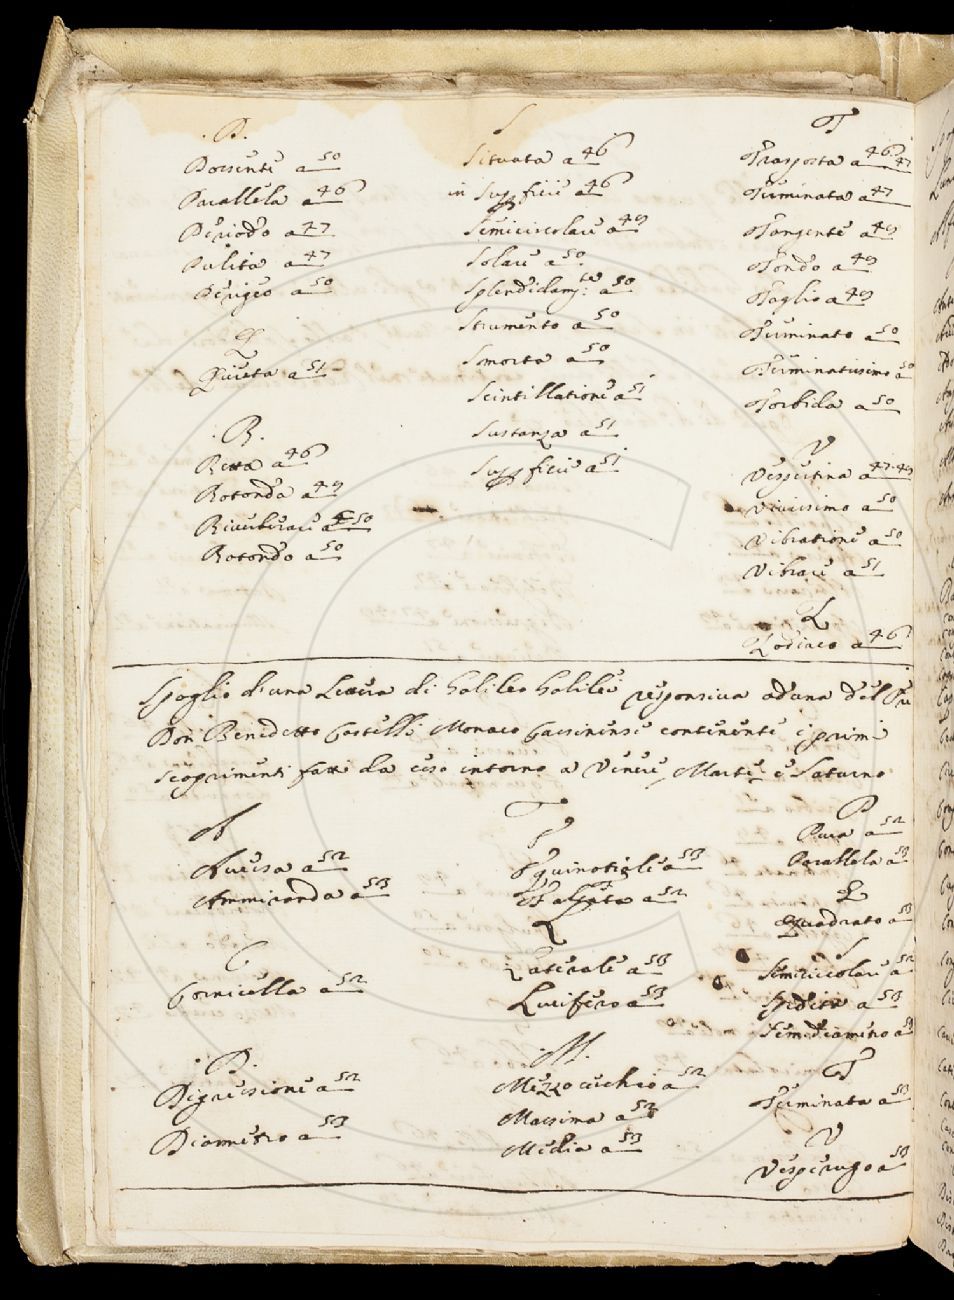 .P.
Possente a 50
Parallela a 46
Periodo a 47
Pulita a 47
Perigeo a 50
Q
Quieta a 51
.R.
Retta a 46
Rotonda a 49
Riverberare a 50
Rotondo a 50
S
Situata a 46
in Superficie a 46
Semicircolare a 49
Solare a 50
Splendidam.te a 50
Strumento a 50
Smorta a 50
Scintillatione a 51
Sustanza a 51
Superficie a 51
T
Trasposta a 46 47
Terminata a 47
Tangente a 49
Tondo a 49
Taglio a 49
Terminato a 50
Terminatissimo a 50
Torbida a 50
V
Vespertina a 47. 49
Vivissimo a 50
Vibratione a 50
Vibrare a 51
Z
Zodiaco a 46
Spoglio d'una Lettera di Galileo Galilei responsiva ad una del
Don Benedetto Castelli Monaco Casinense continente i primi
scoprimenti fatti da esso intorno a Venere, Marte e Saturno
A
Avversa a 52
Ammiranda a 53
C
Cornicella a 52
.D.
Digressione a 52
Diametro a 53
F
a 53
Falcata a 52
L
Laterale a 53
Lucifero a 53
.M.
Mezzo cerchio a 52
Massima a 53
Media a 53
P
Pura a 52
Parallela a 53
Q
Quadrato a 53
S
Semicircolare a 52
a 53
Semidiametro a 53
T
Terminata a 53
V
Vesperugo a 53